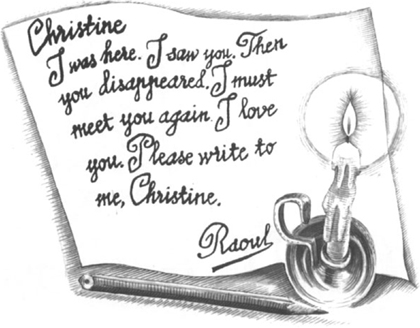 Christine
I was here. I saw you. Then
you disappeared. I must
meet you again. I love
you. Please write to
me, Christine.
Raoul